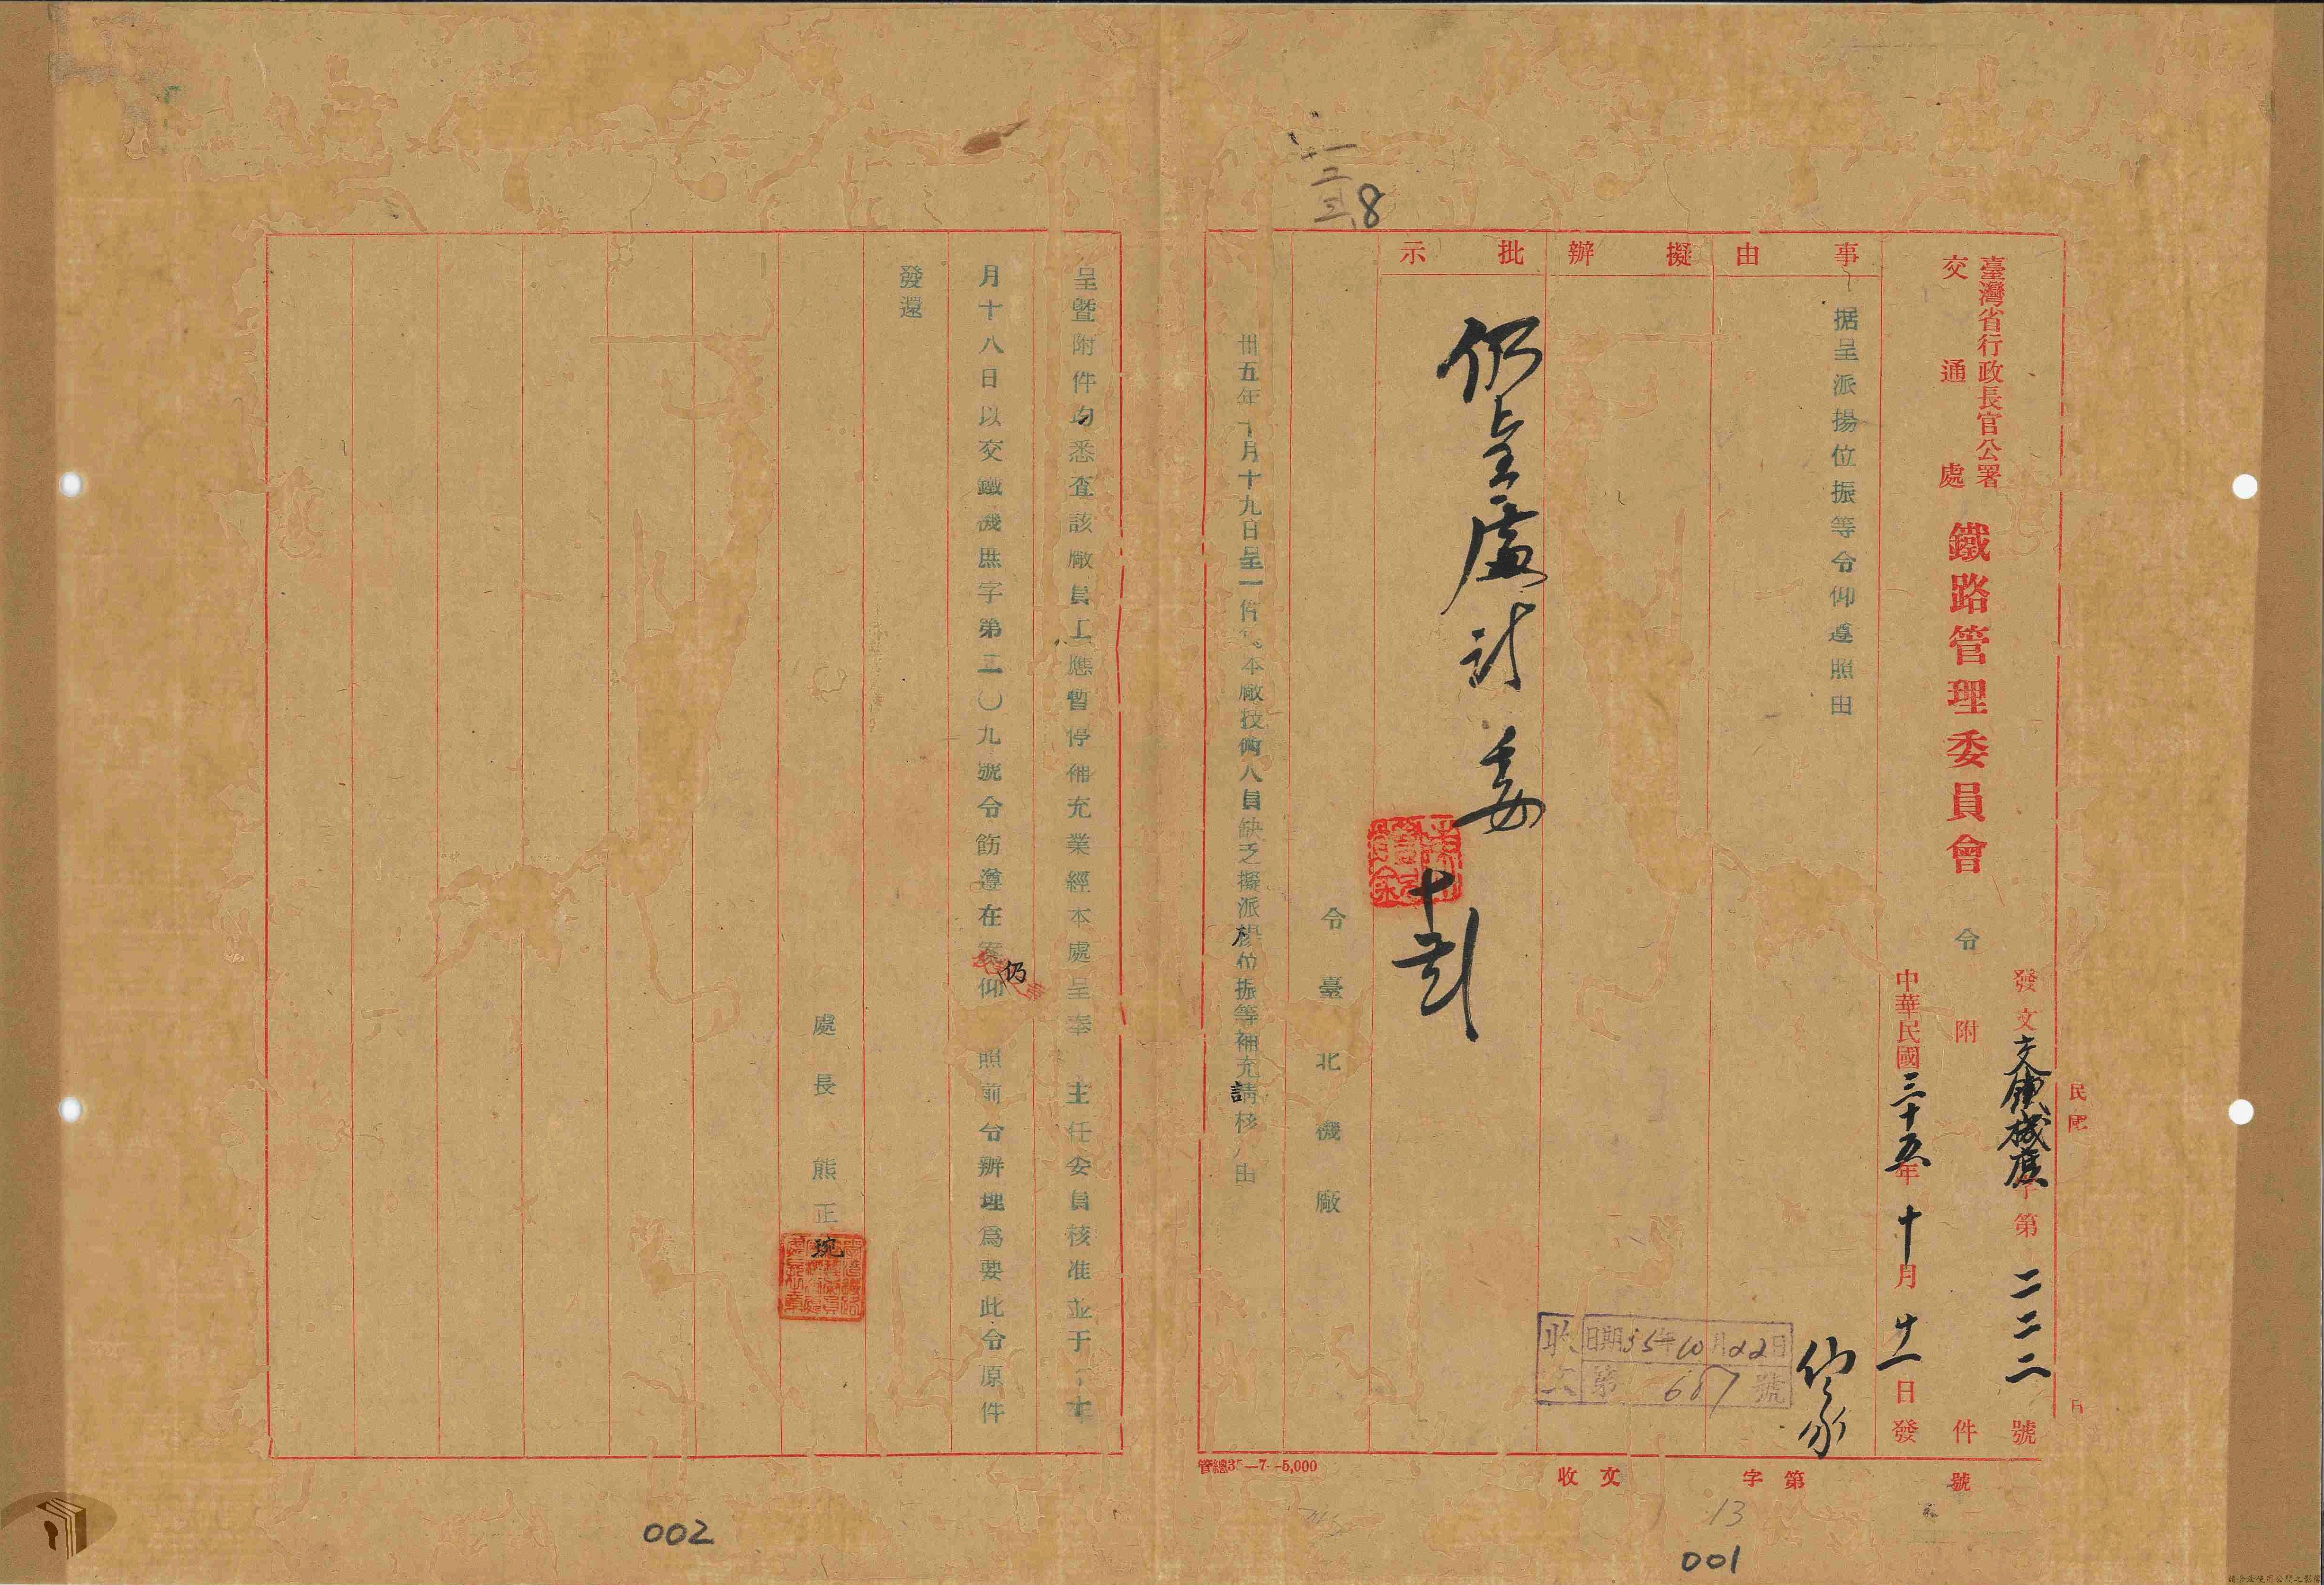 臺灣省行政長官公署
交通處
鐵路管理委員會
令
發文交鐵機庶字第二二二號
附件
中華民國三十五年十月廿一日發
民國
事由
据呈派揚位振等令仰遵照由
擬辦
批示
令臺北機廠
卅五年十月十九日呈一件為本廠技術人員缺乏擬派楊位振等補充請核由
收文
日期35年10月22日
第687號
收文 字第 號
管總35—7—5,000
8
13
001
呈暨附件均悉查該廠員工應暫停補充業經本處呈奉 主任委員核准並于十
月十八日以交鐵機庶字第二〇九號令飭遵在案仍仰 照前令辦理為要此令原件
發還
處長熊正琬
002